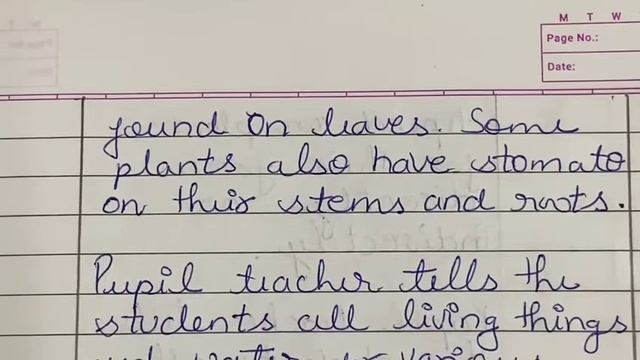 M T W
Page No.:
Date:
found on leaves. Some
plants also have stomato
on their stems and roots.
Pupil teacher tells the
students all living things